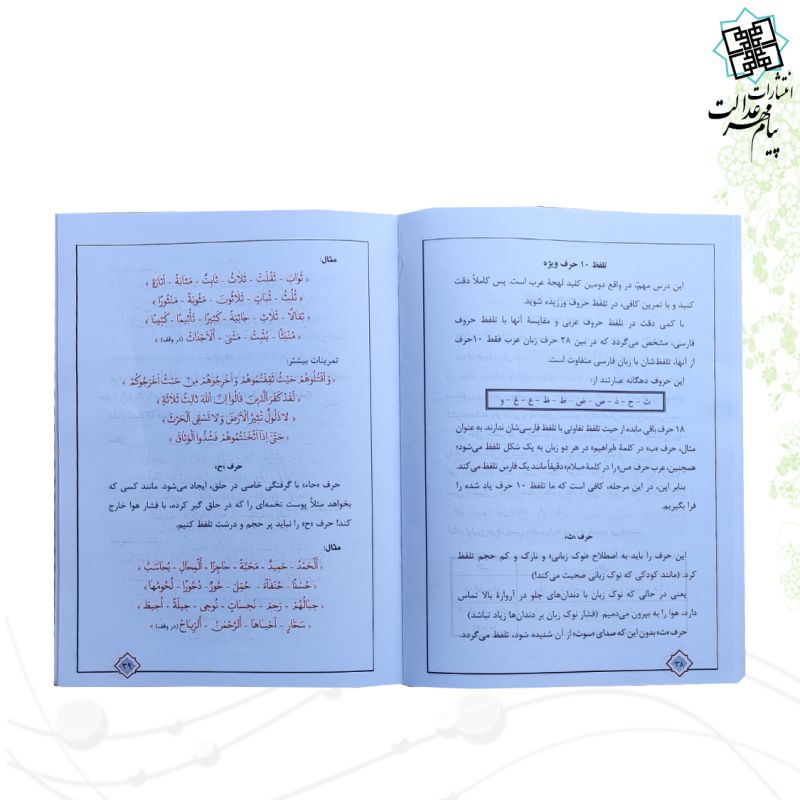 انتشارات
پیام مهر عدالت
تلفظ ۱۰ حرف ویژه
این درس مهمّ، در واقع دومین کلید لهجهٔ عرب است. پس کاملاً دقت
کنید و با تمرین کافی، در تلفظ حروف ورزیده شوید.
با کمی دقت در تلفظ حروف عربی و مقایسهٔ آنها با تلفظ حروف
فارسی، مشخص می‌گردد که در بین ۲۸ حرف زبان عرب فقط ۱۰حرف
از آنها، تلفظ‌شان با زبان فارسی متفاوت است.
این حروف دهگانه عبارتند از:
ث - ح - ذ - ص - ض - ط - ظ - ع - غ - و
۱۸ حرف باقی مانده از حیث تلفظ تفاوتی با تلفظ فارسی‌شان ندارند. به عنوان
مثال، حرف «ب» در کلمهٔ «ابراهیم» در هر دو زبان به یک شکل تلفظ می‌شود؛
همچنین، عرب حرف «س» را در کلمهٔ «سلام» دقیقاً مانند یک فارس تلفظ می‌کند.
بنابر این، در این مرحله، کافی است که ما تلفظ ۱۰ حرف یاد شده را
فرا بگیریم.
حرف «ث»
این حرف را باید به اصطلاح «نوک زبانی» و نازک و کم حجم تلفظ
کرد. (مانند کودکی که نوک زبانی صحبت می‌کند!)
یعنی در حالی که نوک زبان با دندان‌های جلو در آروارهٔ بالا تماس
دارد، هوا را به بیرون می‌دمیم. (فشار نوک زبان بر دندان‌ها زیاد نباشد)
حرف «ث» بدون این که صدای «سوت» از آن شنیده شود، تلفظ می‌گردد.
۳۸
مثال:
﴿ ثَوَابَ - ثَقُلَتْ - ثَلَاثُ - ثَالِثُ - مَثَابَةً - أَثَارَةٍ ﴾
﴿ ثُلُثُ - ثُبَاتٍ - ثَلَاثُونَ - مَثُوبَةً - مَنْثُورًا ﴾
﴿ ثِقَالًا - ثَلَاثِ - جَاثِيَةً - كَثِيرًا - تَأْثِيمًا - كَثِيبًا ﴾
﴿ مُنْبَثًّا - يُثْبِتُ - مَثْنَىٰ - ٱلْأَجْدَاثِ (در وقف) ﴾
تمرینات بیشتر:
﴿ وَٱقْتُلُوهُمْ حَيْثُ ثَقِفْتُمُوهُمْ وَأَخْرِجُوهُمْ مِنْ حَيْثُ أَخْرَجُوكُمْ ﴾
﴿ لَقَدْ كَفَرَ ٱلَّذِينَ قَالُوا إِنَّ ٱللّٰهَ ثَالِثُ ثَلَاثَةٍ ﴾
﴿ لَا ذَلُولٌ تُثِيرُ ٱلْأَرْضَ وَلَا تَسْقِى ٱلْحَرْثَ ﴾
﴿ حَتّٰىٓ إِذَآ أَثْخَنْتُمُوهُمْ فَشُدُّوا ٱلْوَثَاقَ ﴾
حرف «ح»
حرف «حاء» با گرفتگی خاصی در حلق، ایجاد می‌شود. مانند کسی که
بخواهد مثلاً پوست تخمه‌ای را که در حلق گیر کرده، با فشار هوا خارج
کند! حرف «ح» را نباید پر حجم و درشت تلفظ کنیم.
مثال:
﴿ ٱلْحَمْدُ - حَمِيدٌ - مَحَبَّةً - حَاجِزًا - ٱلْمِحَالِ - يُحَاسَبُ ﴾
﴿ حُسْنًا - حُنَفَآءَ - حُمِّلَ - حُورٌ - دُحُورًا - لُحُومُهَا ﴾
﴿ حِبَالُهُمْ - رَحِمَ - نَحِسَاتٍ - نُوحِى - حِيلَةً - أُحِيطَ ﴾
﴿ سَحَّارٍ - أَحْيَاهَا - ٱلرَّحْمٰنُ - ٱلرِّيَاحُ (در وقف) ﴾
۳۹